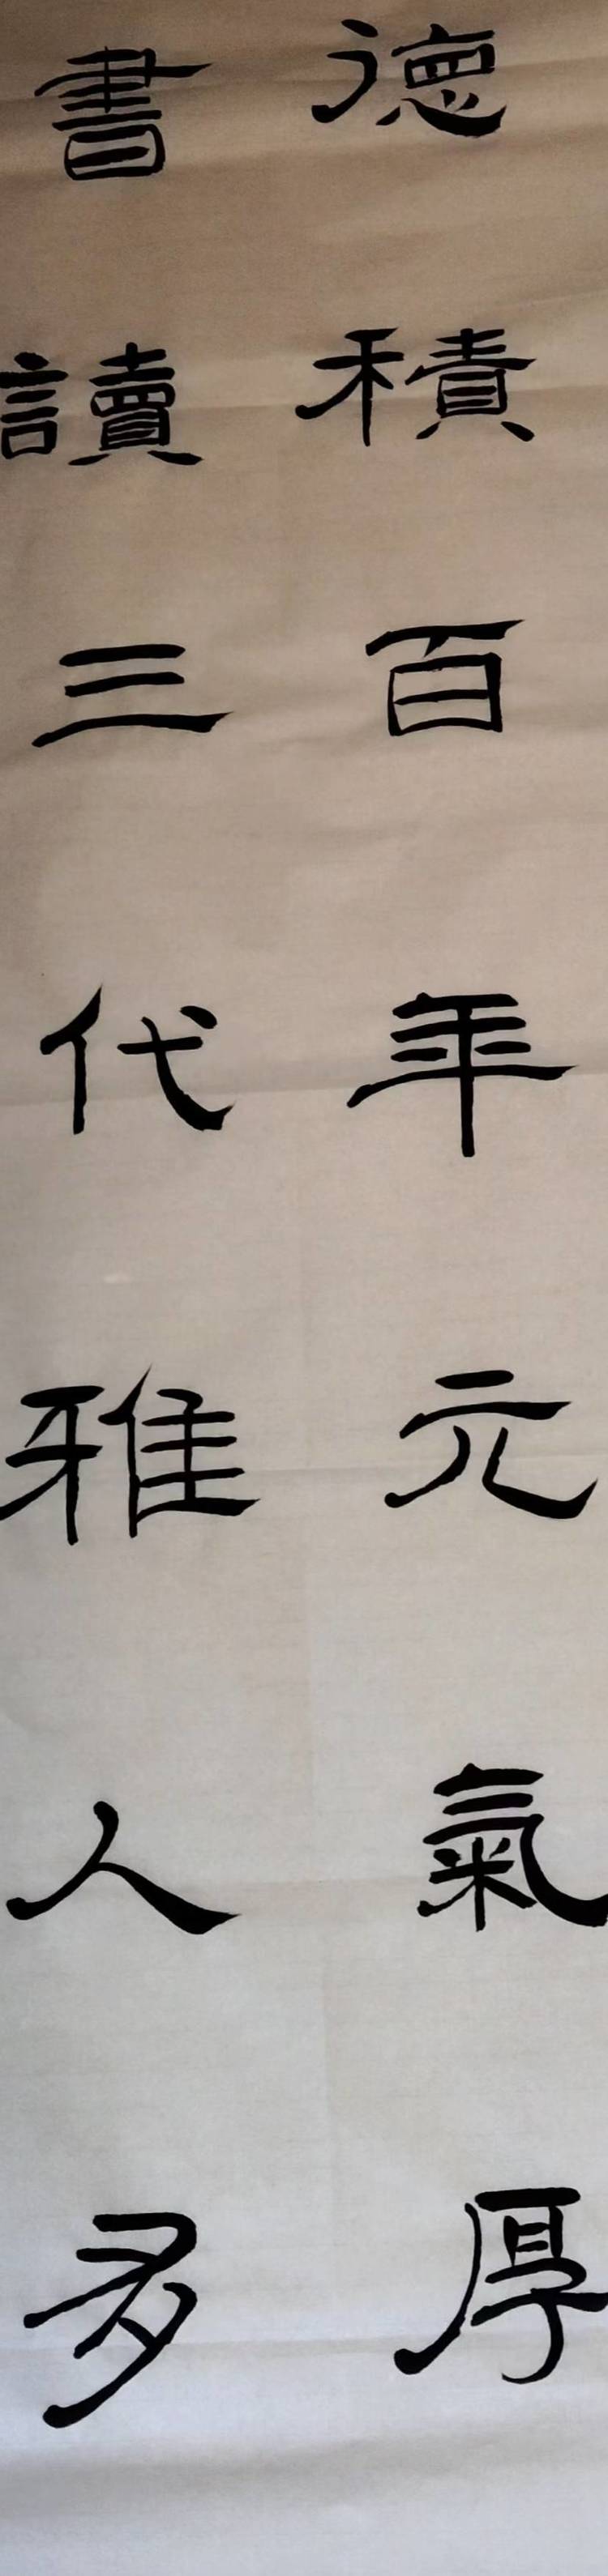 德積百年元氣厚
書讀三代雅人多